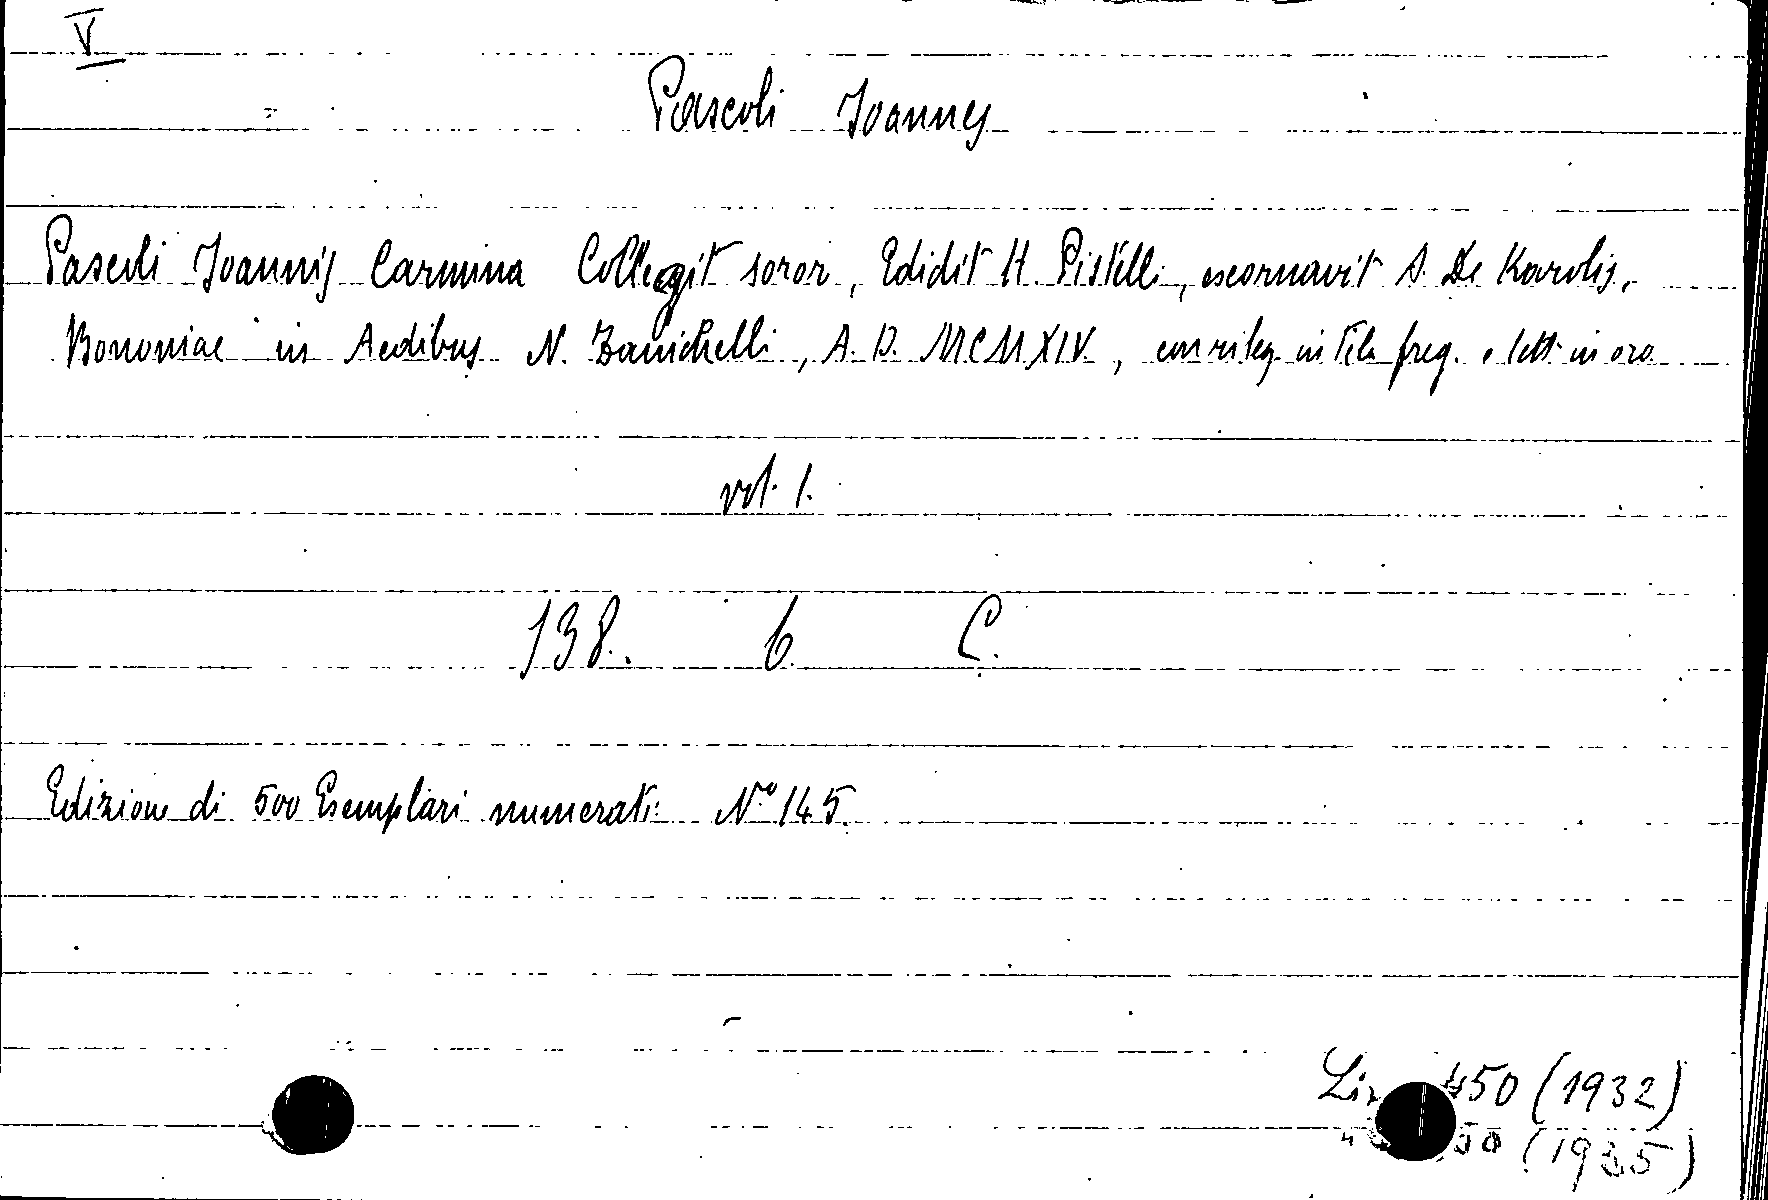 V
Pascoli Joannes
Pascoli Joannis Carmina Collegit soror, Edidit H. Pistelli, exornavit A. De Karolis.
Bononiae in Aedibus N. Zanichelli, A. D. MCMXIV, con rileg. in tela freg. e lett. in oro
vol. 1.
138. 6. C.
Edizione di 500 Esemplari numerati: N.º 145.
450 (1932)
" 50 (1935)